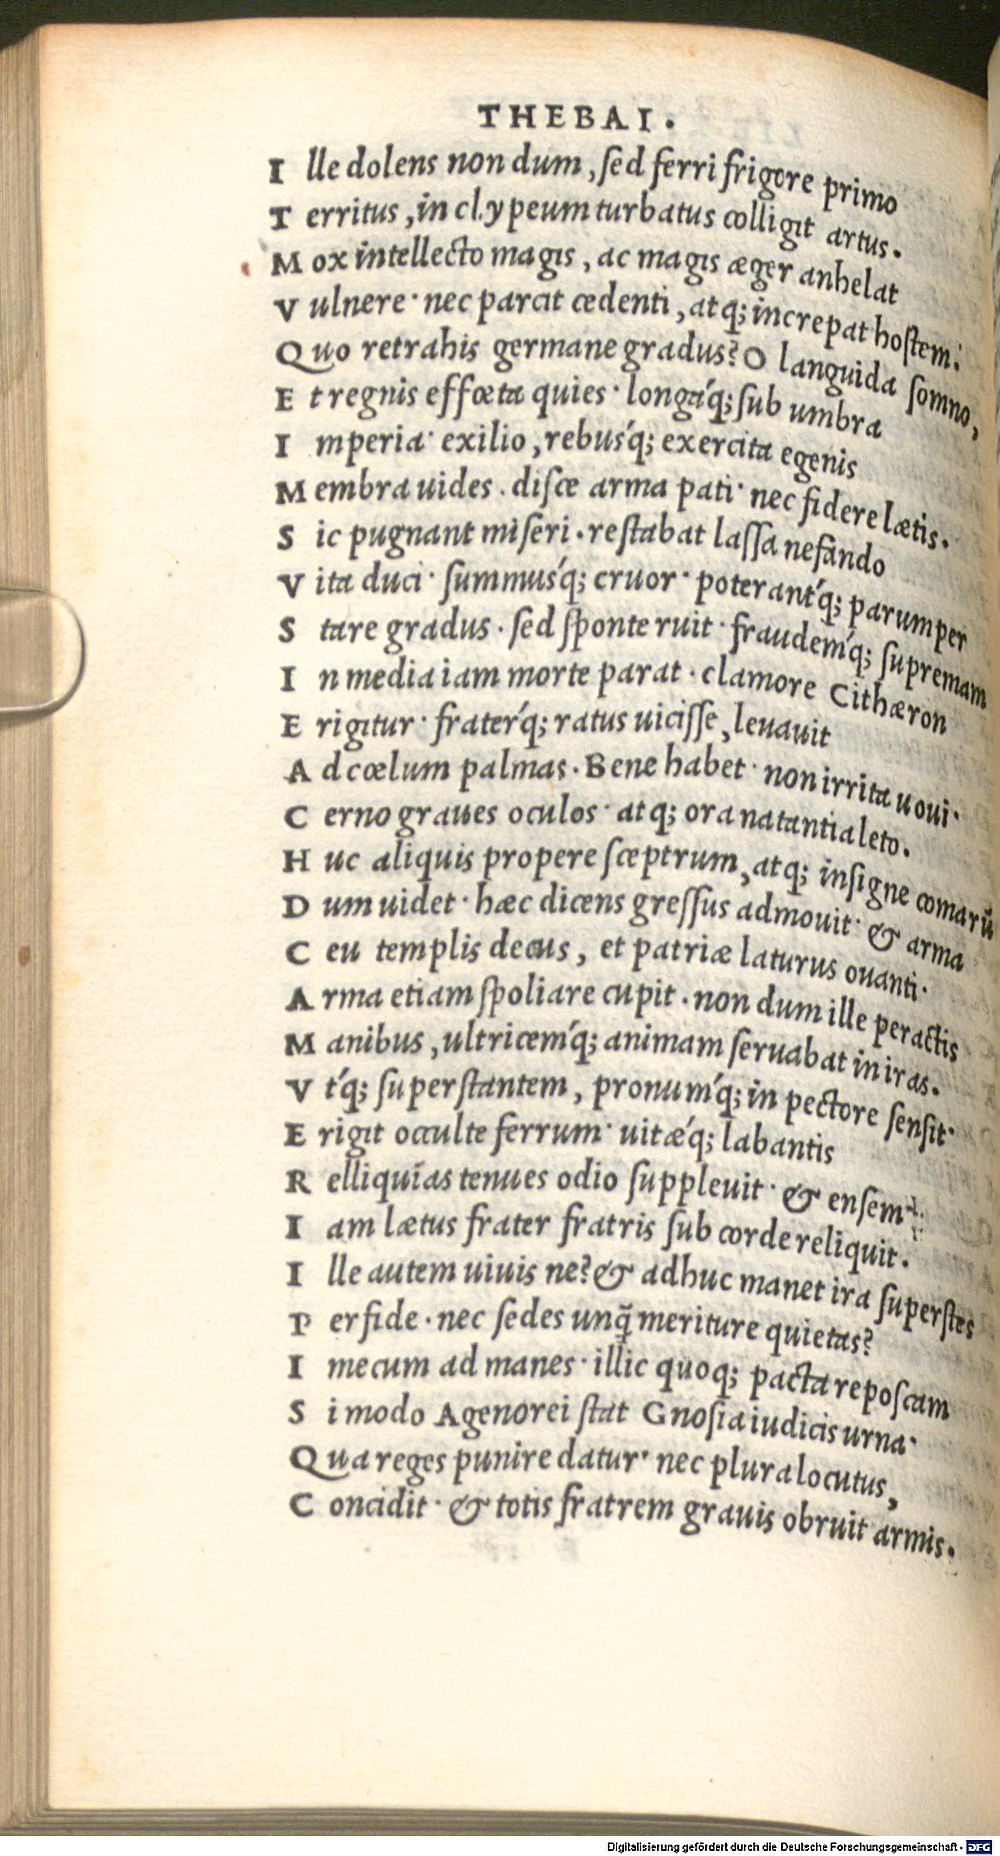 THEBAI.
I lle dolens non dum, sed ferri frigore primo
T erritus, in clypeum turbatus colligit artus.
M ox intellecto magis, ac magis æger anhelat
V ulnere· nec parcit cedenti, atq; increpat hostem:
Q uo retrahis germane gradus? O languida somno,
E t regnis effœta quies· longáq; sub umbra
I mperia· exilio, rebusq́; exercita egenis
M embra uides. disce arma pati· nec fidere lætis.
S ic pugnant miseri. restabat lassa nefando
V ita duci· summusq́; cruor· poterantq́; parumper
S tare gradus. sed sponte ruit· fraudemq́; supremam
I n media iam morte parat. clamore Cithæron
E rigitur· fraterq́; ratus uicisse, leuauit
A d cœlum palmas. Bene habet· non irrita uoui·
C erno graues oculos· atq; ora natantia leto.
H uc aliquis propere sceptrum, atq; insigne comarū
D um uidet· hæc dicens gressus admouit· & arma
C eu templis decus, et patriæ laturus ouanti·
A rma etiam spoliare cupit. non dum ille peractis
M anibus, ultricemq́; animam seruabat in iras.
V tq́; superstantem, pronumq́; in pectore sensit·
E rigit occulte ferrum· uitæq́; labantis
R elliquías tenues odio suppleuit· & ensem
I am lætus frater fratris sub corde reliquit.
I lle autem uiuis ne? & adhuc manet ira superstes
P erfide. nec sedes unq̃ meriture quietas?
I mecum ad manes· illic quoq; pacta reposcam
S i modo Agenorei stat Gnosia iudicis urna·
Q ua reges punire datur· nec plura locutus,
C oncidit· & totis fratrem grauis obruit armis.
Digitalisierung gefördert durch die Deutsche Forschungsgemeinschaft - DFG